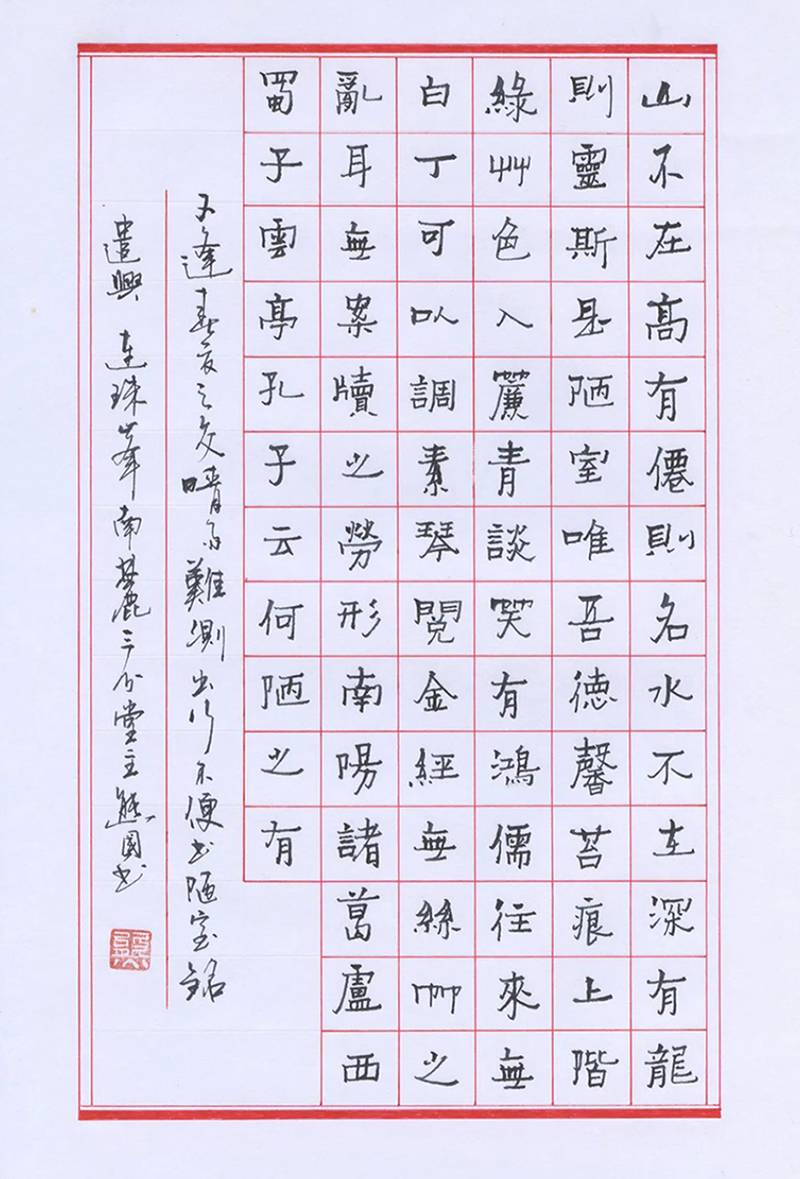 山不在高有僊則名水不在深有龍
則靈斯是陋室唯吾德馨苔痕上階
綠艸色入簾青談笑有鴻儒往來無
白丁可以調素琴閱金經無絲竹之
亂耳無案牘之勞形南陽諸葛盧西
蜀子雲亭孔子云何陋之有
逢春夏之交晴雨難測出行不便書陋室銘
遣興 連珠峯南麓三分堂主熊書